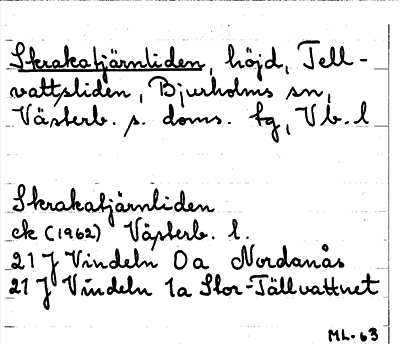 Skrakatjärnliden, höjd, Tell-
vattsliden, Bjurholms sn,
Västerb. s. doms. tg, Vb. l
Skrakatjärnliden
ek (1962) Västerb. l.
21 J Vindeln 0a Nordanås
21 J Vindeln 1a Stor-Tällvattnet
ML-63